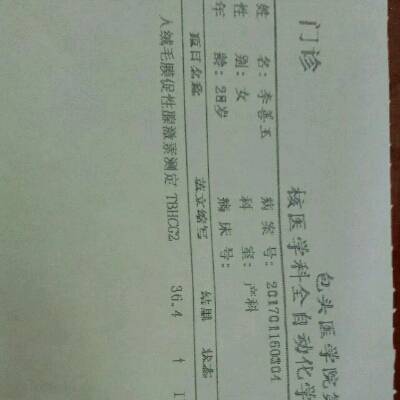 包头医学院第
门诊 核医学科全自动化学
姓 名：李善玉 病案号：201701160304
性 别：女 科 室：产科
年 龄：28岁 病床号：
项目名称 英文缩写 结果 状态
人绒毛膜促性腺激素测定 TBHCG2 36.4 ↑